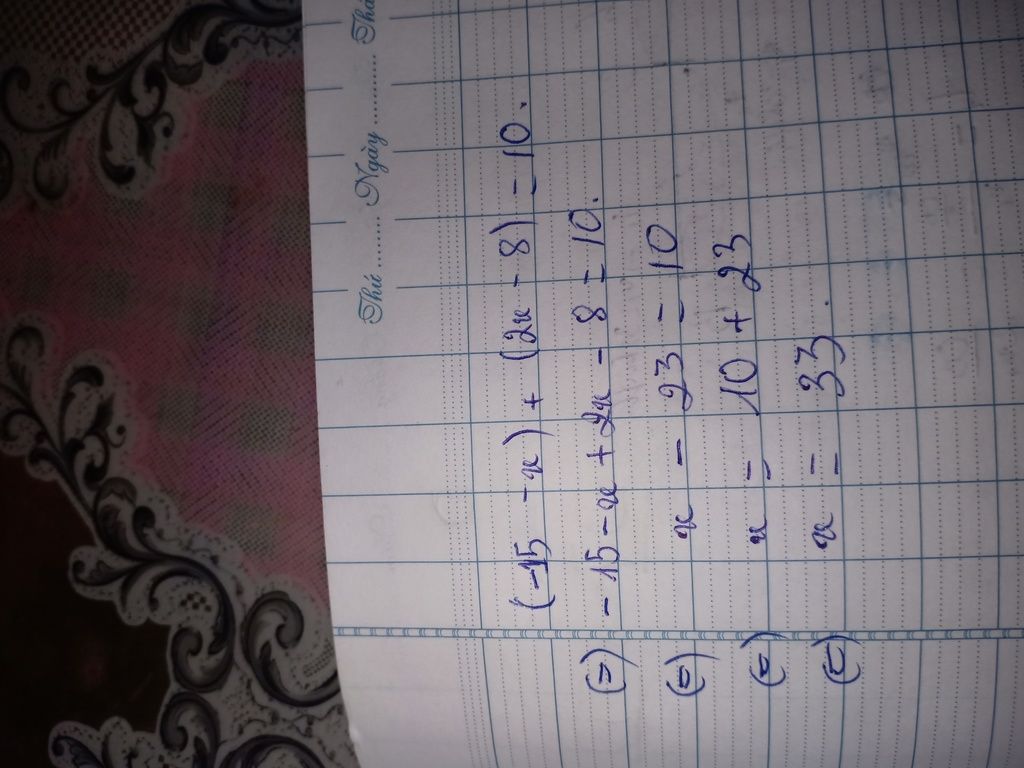 Thứ ........ Ngày ............ Thá
(-15 - x) + (2x - 8) = 10.
(=) -15 - x + 2x - 8 = 10.
(=) x - 23 = 10
(=) x = 10 + 23
(=) x = 33.